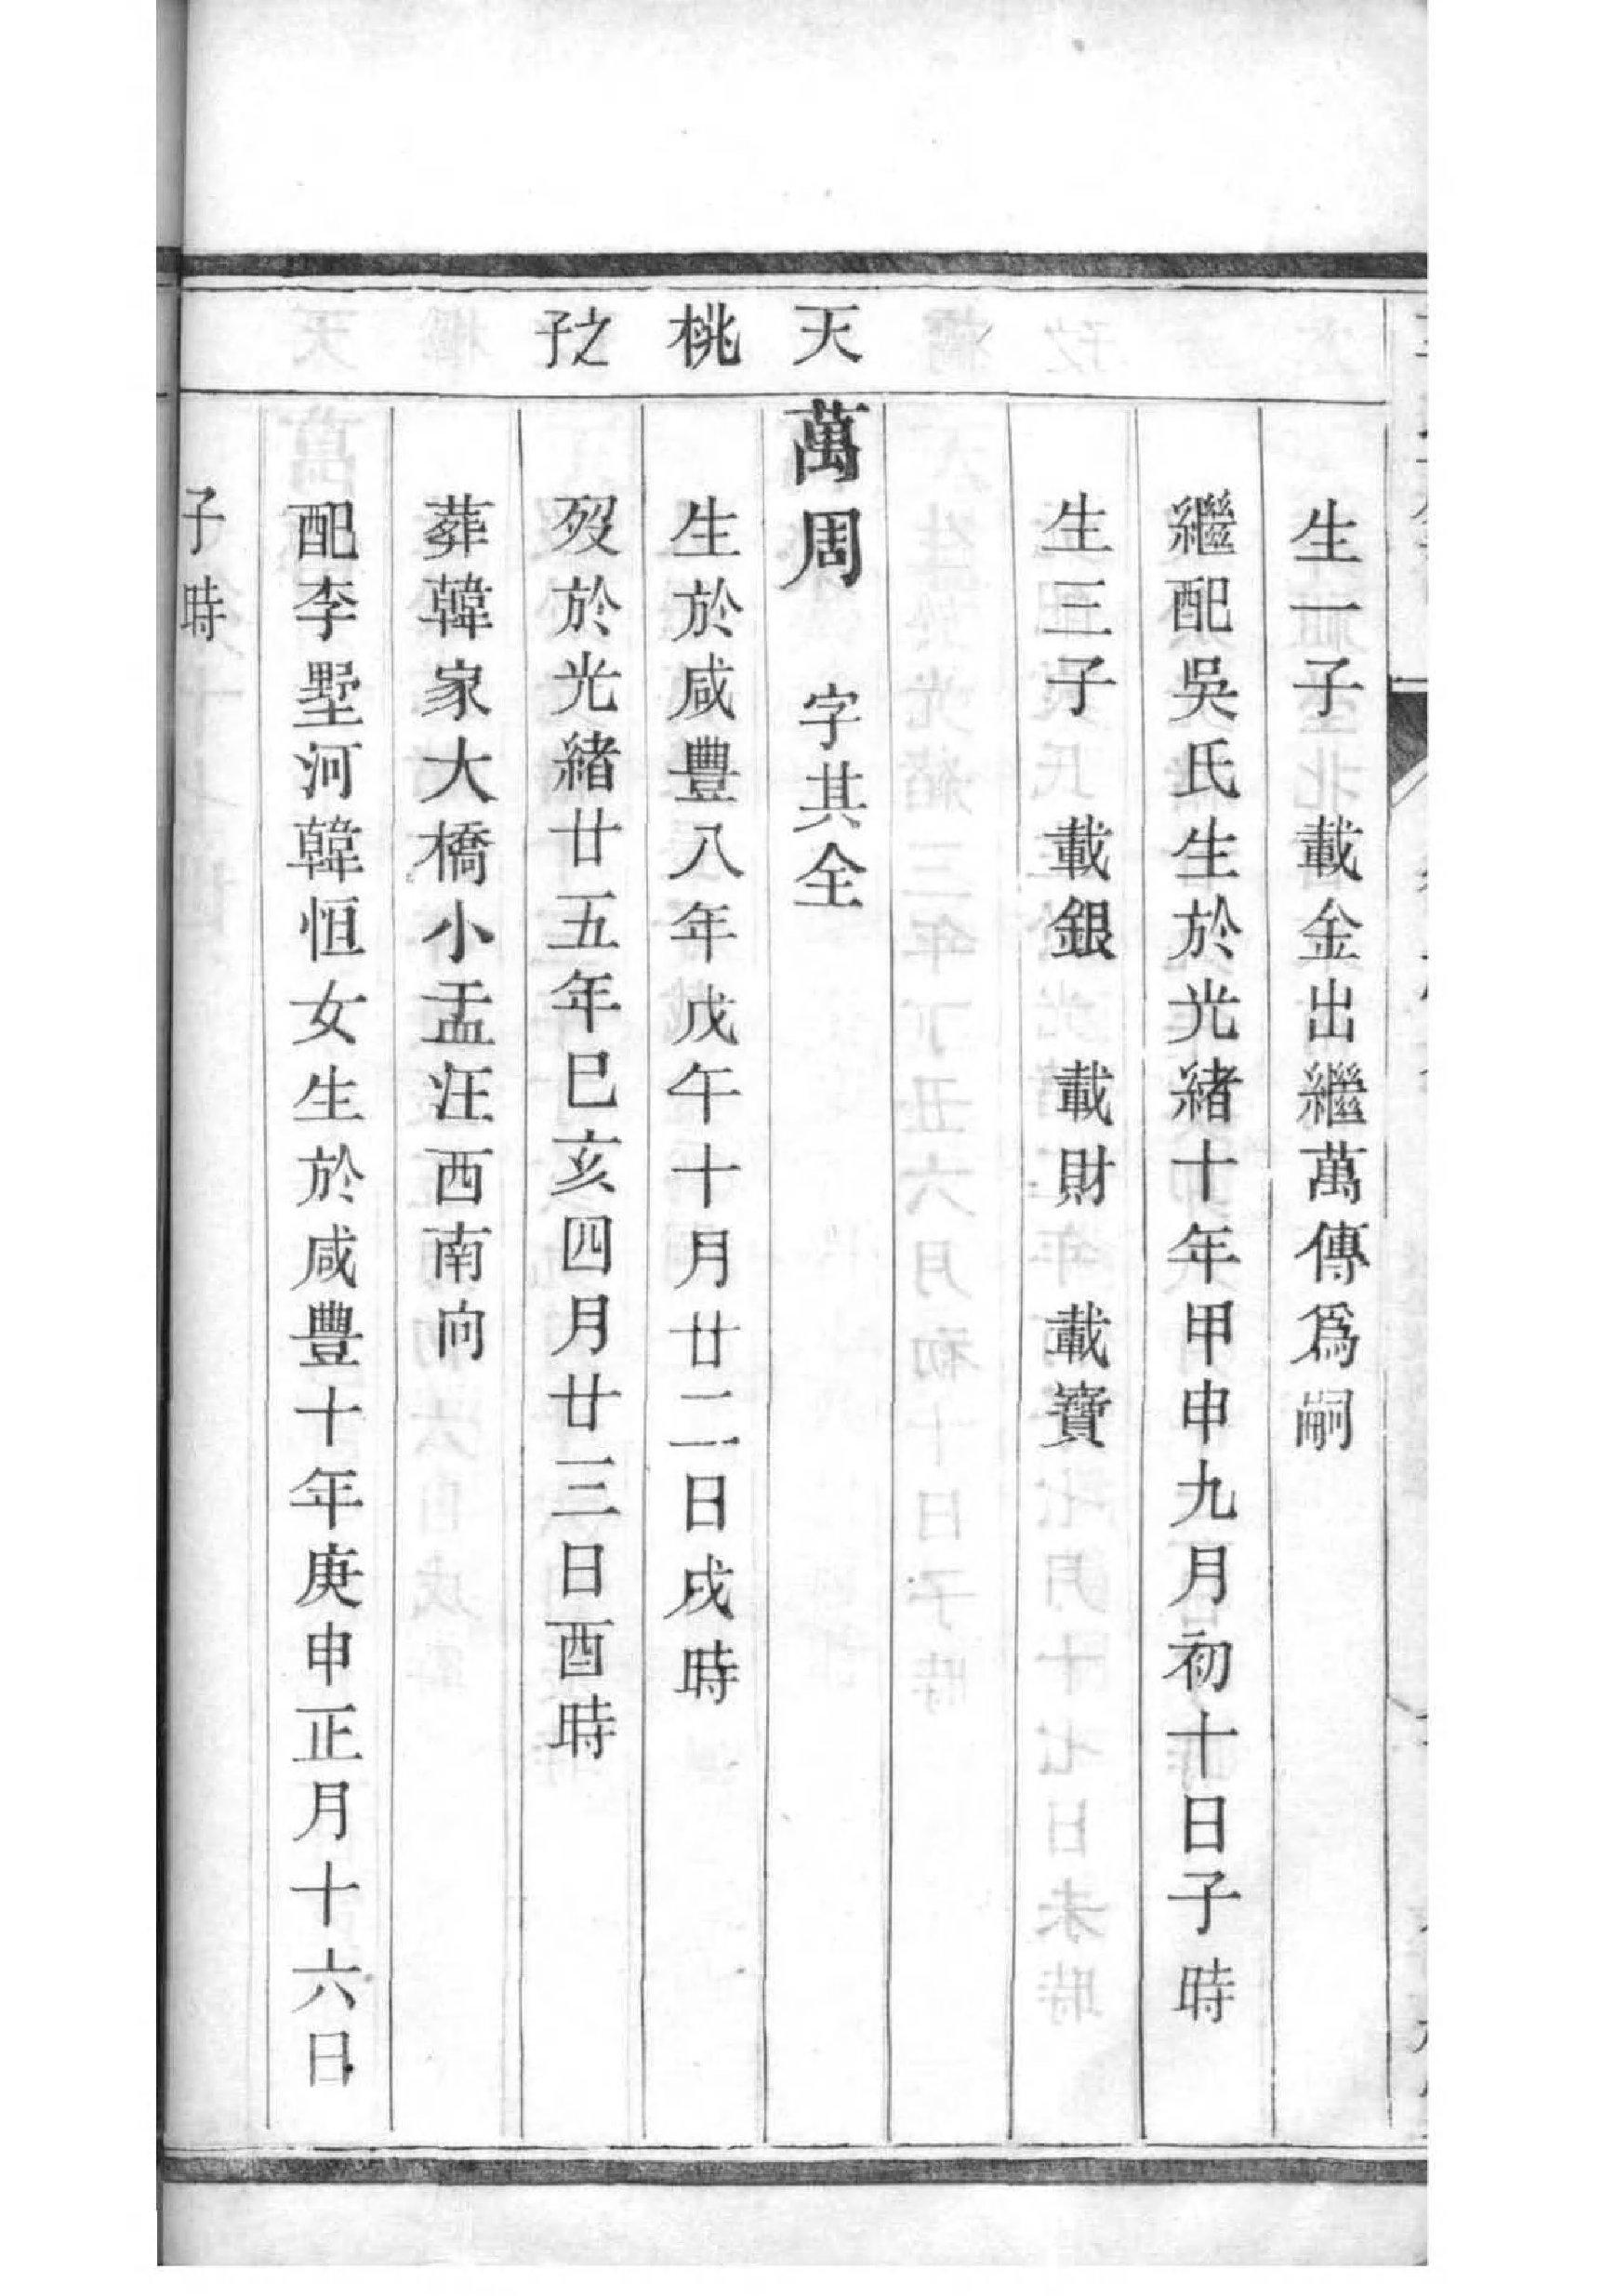 生一子　載金出繼萬傳爲嗣
繼配吳氏生於光緒十年甲申九月初十日子時
生三子　載銀　載財　載寶
天
萬周　字其全
桃
生於咸豐八年戊午十月廿二日戌時
之子
歿於光緒廿五年巳亥四月廿三日酉時
葬韓家大橋小盂汪西南向
配李墅河韓恒女生於咸豐十年庚申正月十六日
子時